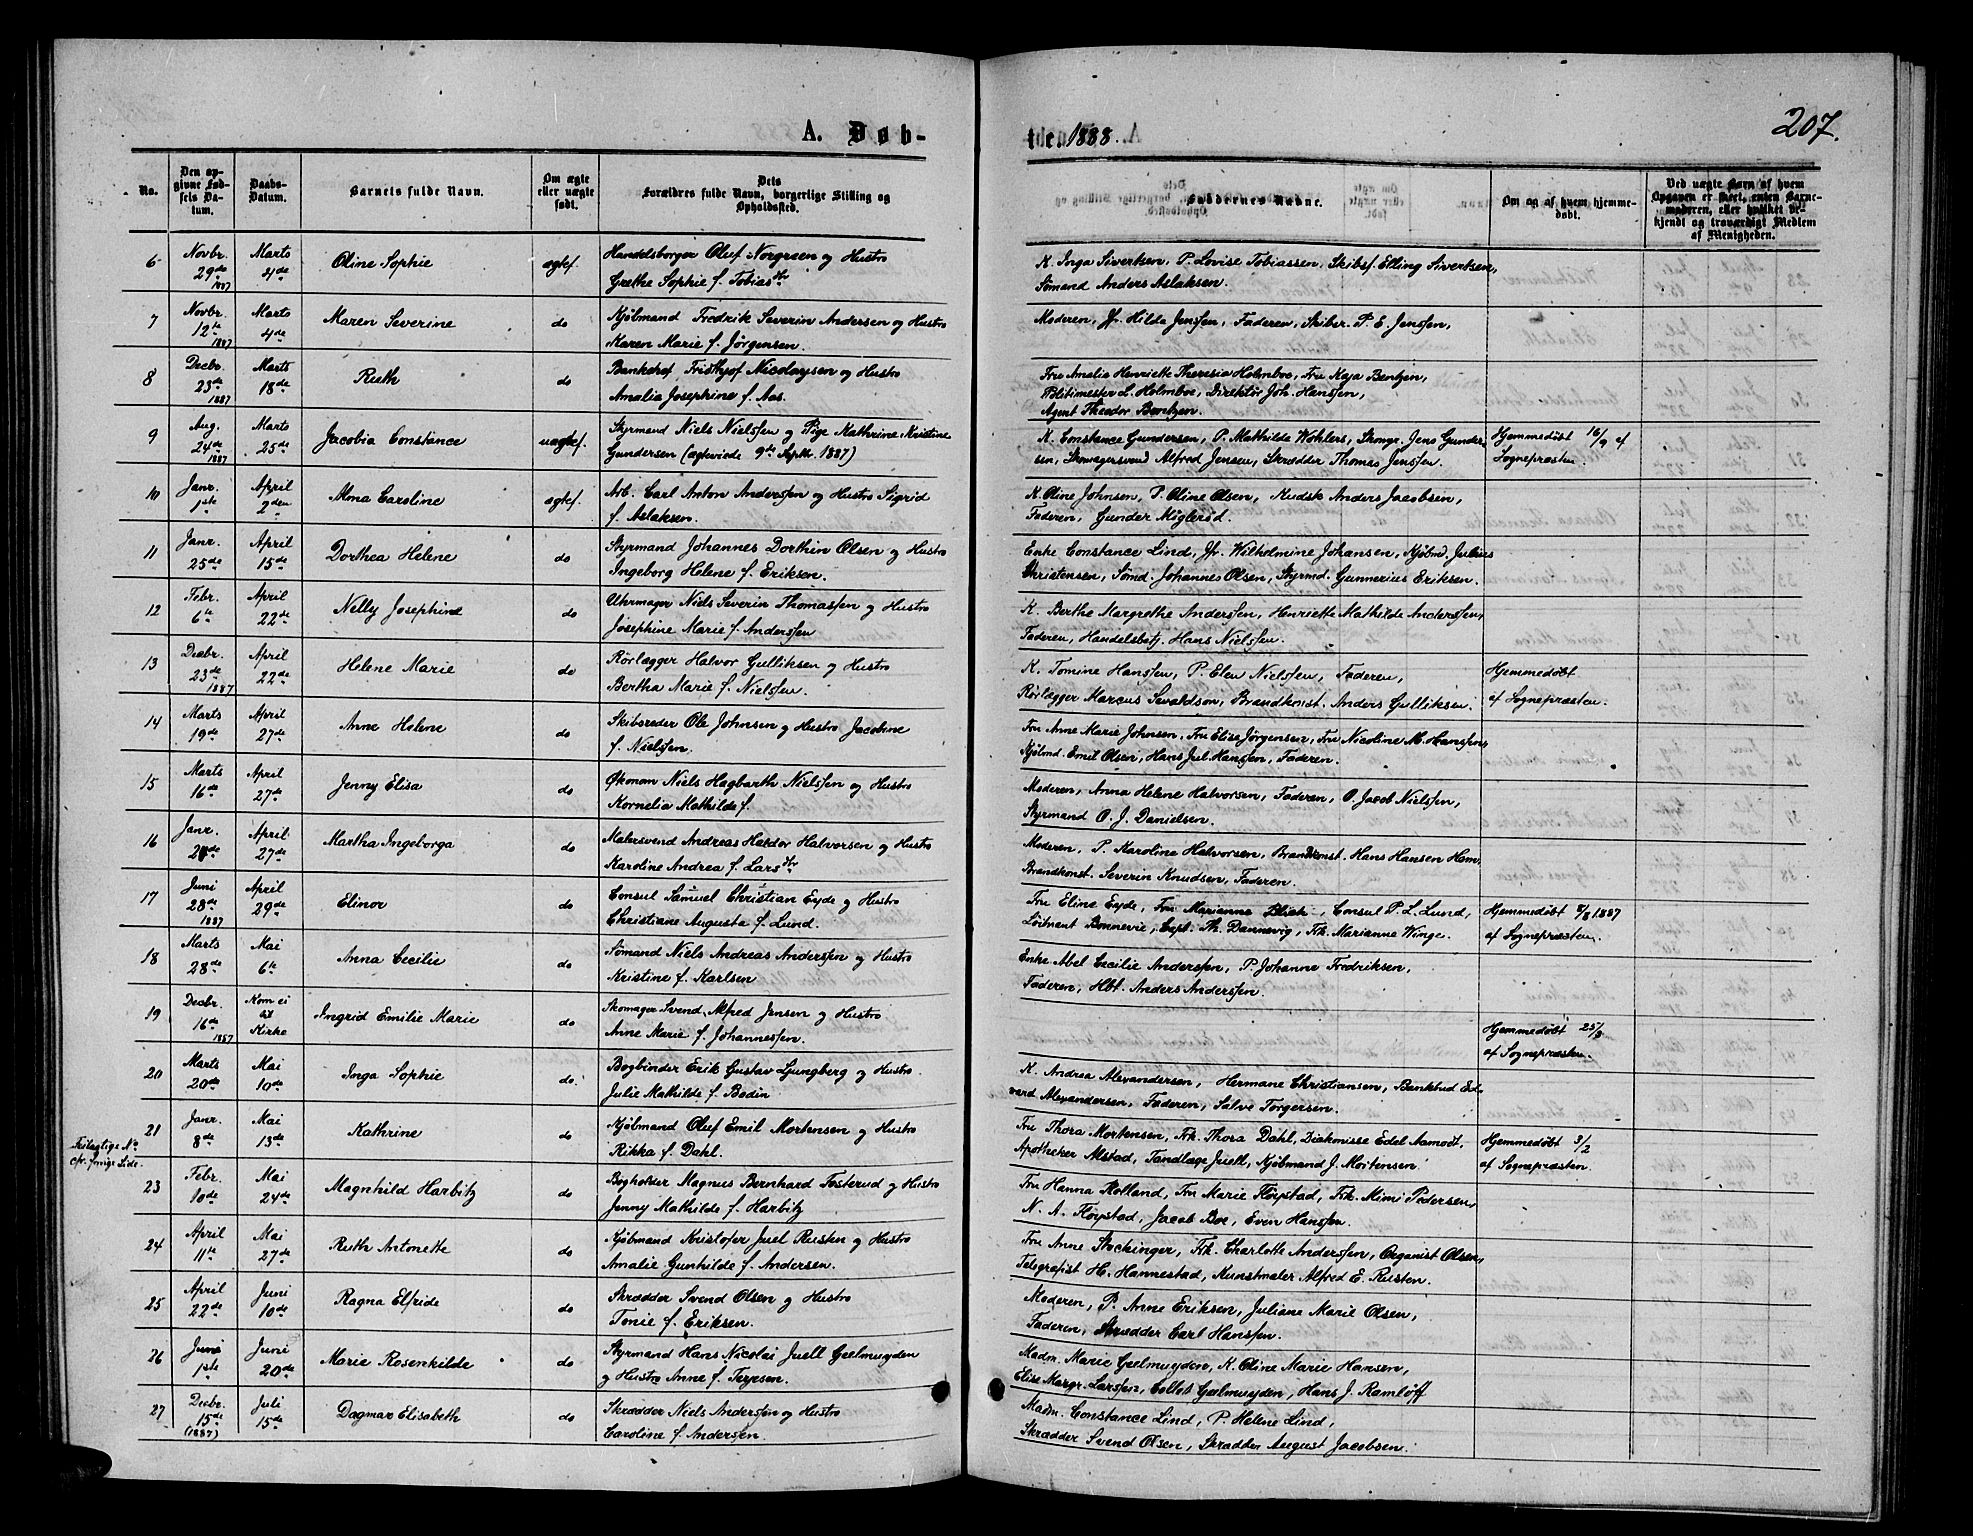 A. Døb-
No.
Den opgivne Fødsels Datum.
Daabs-Datum.
Barnets fulde Navn.
Om ægte eller uægte født.
Dets Forældres fulde Navn, borgerlige Stilling og Opholdssted.
6 Novbr. 29de 1887 Marts 4de Oline Sophie ægtef. Handelsborger Oluf Norgreen og Hustro
Grethe Sophie f. Tobiasdtr
7 Novbr. 12te 1887 Marts 4de Maren Severine do Kjøbmand Fredrik Severin Andersen og Hustro
Karen Marie f. Jørgensen.
8 Decbr. 23de 1887 Marts 18de Ruth do Bankchef Fridthjof Nicolaysen og Hustro
Amalia Josephine f. Aas.
9 Aug. 24de 1887 Marts 25de Jacobia Constance uægtef. Styrmand Niels Nielsſen og Pige Kathrine Kristine
Gundersen (ægteviede 9de Septbr. 1887)
10 Janr. 1ste April 2den Alma Caroline ægtef. Arb. Carl Anton Andersſen og Hustro Sigrid
f. Aslaksen.
11 Janr. 25de April 15de Dorthea Helene do Styrmand Johannes Dorthin Olsen og Hustro
Ingeborg Helene f. Eriksen.
12 Febr. 6te April 22de Nelly Josephine do Uhrmager Niels Severin Thomasſen og Hustro
Josephine Marie f. Andersſen
13 Decbr. 23de 1887 April 22de Helene Marie do Rørlægger Halvor Gulliksen og Hustro
Bertha Marie f. Nielsſen.
14 Marts 19de April 27de Anne Helene do Skibsreder Ole Johnsen og Hustro Jacobine
f. Nielsſen.
15 Marts 16de April 27de Jenny Elisa do Økonom Niels Hagbarth Nielsſen og Hustro
Kornelia Mathilde f.
16 Janr. April 27de Martha Ingeborga do Malersvend Andreas Haldor Halvorsen og Hustro
Karoline Andrea f. Larsdtr
17 Juni 28de 1887 April 29de Elinor do Consul Samuel Christian Eyde og Hustro
Christiane Augusta f. Lund.
18 Marts 28de Mai 6te Anna Cecilie do Sømand Niels Andreas Andersſen og Hustro
Kristine f. Karlsen
19 Decbr. 16de 1887 Kom ei til Kirke Ingrid Emilie Marie do Skomager Svend Alfred Jensen og Hustro
Anne Marie f. Johannesſen.
20 Marts 20de Mai 10de Inga Sophie do. Bogbinder Erik Gustav Ljungberg og Hustro
Julie Mathilde f. Bodin
21 Janr. 8de Mai 13de Kathrine do Kjøbmand Oluf Emil Mortensen og Hustro
Rikka f. Dahl.
Feilagtige No
cfr. forrige Side.
23 Febr. 10de Mai 24de Magnhild Harbitz do Bogholder Magnus Bernhard Fosterud og Hustro
Jenny Mathilde f. Harbitz
24 April 11te Mai 27de Ruth Antonette do Kjøbmand Kristofer Juel Rusten og Hustro
Amalie Gunhilde f. Andersen.
25 April 22de Juni 10de Ragna Elfride do Skrædder Svend Olsen og Hustro
Tonie f. Eriksen.
26 Juni 1ste Juni 20de Marie Rosenkilde do Styrmand Hans Nicolai Juell Geelmuyden
og Hustro Anne f. Terjesen.
27 Decbr. 15de (1887) Juli 15de Dagmar Elisabeth do Skrædder Niels Andersſen og Hustro
Caroline f. Andersen.
te 1888.
207.
Faddernes Navne.
Om og af hvem hjemmedøbt.
Ved uægte Barn af hvem Opgaven er skeet, enten Barnemoderen, eller hvilket bekjendt og troværdigt Medlem af Menigheden.
K. Inga Sivertsen, P. Lovise Tobiassen, Skibsf. Elling Sivertsen,
Sømand Anders Aslaksen.
Moderen, Jfr. Hilda Jensſen, Faderen, Skiber. P. E. Jensſen,
Fru Amalia Henriette Theresia Holmboe, Fru Kaja Bentzen,
Politimester L. Holmboe, Direktør Joh. Hansſen,
Agent Theodor Bentzen.
K. Constance Gundersen, P. Mathilde Wöhlers, Skomgr. Jens Gunder-
sen, Skomagersvend Alfred Jensen, Skrædder Thomas Jensſen.
Hjemmedøbt 16/9 af
Sognepræsten.
K. Oline Johnsen, P. Oline Olsen, Kudsk Anders Jacobsen,
Faderen, Gunder Miglerød.
Enke Constance Lind, Jfr. Wilhelmine Johansen, Kjøbmd. Julius
Christensen, Sømd. Johannes Olsen, Styrmd. Gunnerius Eriksen.
K. Berthe Margrethe Andersſen, Henriette Mathilde Andersſen,
Faderen, Handelsbetj. Hans Nielsſen.
K. Tomine Hansſen, P. Elen Nielsſen, Faderen,
Rørlægger Marcus Sevaldson, Brandkonst. Anders Gulliksen.
Hjemmedøbt
af Sognepræsten.
Fru Anne Marie Johnsen, Fru Elise Jørgensen, Fru Nicoline M. Hansſen,
Kjøbmd. Emil Olsen, Hans Jul. Hansſen, Faderen.
Moderen, Anna Helene Halvorsen, Faderen, O. Jacob Nielsſen,
Styrmand O. J. Danielsen.
Moderen, P. Karoline Halvorsen, Brandkonst. Hans Hansen Hem,
Brandkonst. Severin Knudsen, Faderen.
Fru Eline Eyde, Fru Marianne Blich, Consul P. L. Lund,
Löitnant Bonnevie, Capt. Th. Dannevig, Frk. Marianne Winge.
Hjemmedøbt 8/8 1887
af Sognepræsten.
Enke Abel Cecilie Andersſen, P. Johanne Fredriksen,
Faderen, Hbt. Anders Andersſen.
Hjemmedøbt 25/3
af Sognepræsten.
K. Andrea Alexandersen, Hermane Christiansen, Bankbud Ed-
vard Alexandersen, Faderen, Salve Torgersen.
Fru Thora Mortensen, Frk. Thora Dahl, Diakonisse Edel Aamodt,
Apotheker Alstad, Tandlæge Juell, Kjøbmand J. Mortensen
Hjemmedøbt 3/2
af Sognepræsten.
Fru Hanna Holland, Fru Marie Fløystad, Frk. Mimi Pedersen,
N. A. Fløystad, Jacob Boe, Even Hansſen.
Fru Anne Stockinger, Frk. Charlotte Andersſen, Organist Olsen,
Telegrafist H. Hannestad, Kunstmaler Alfred E. Rusten.
Moderen, P. Anne Eriksen, Juliane Marie Olsen,
Faderen, Skrædder Carl Hansſen.
Madm. Marie Geelmuyden, K. Oline Marie Hansen,
Elise Margr. Larsſen, Collet Geelmuyden, Hans J. Ramløff
Madm. Constance Lind, P. Helene Lind,
Skrædder Svend Olsen, Skrædder August Jacobsen.